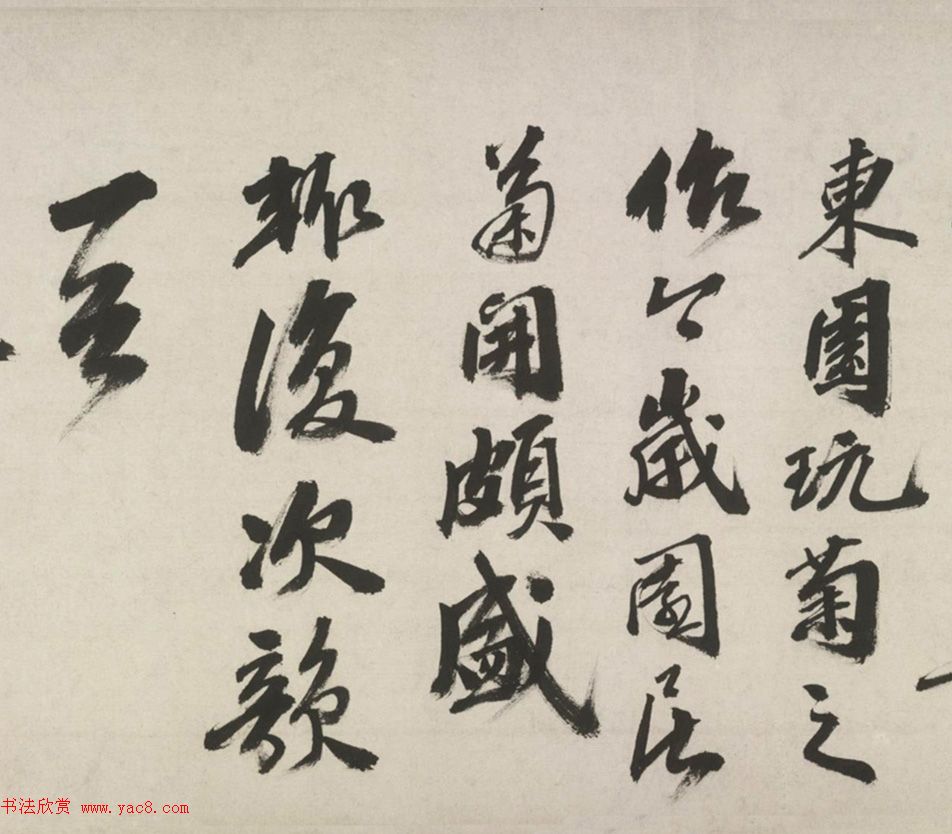 東園玩菊之
作今歲園居
菊開頗盛
輒復次韻
书法欣赏 www.yac8.com